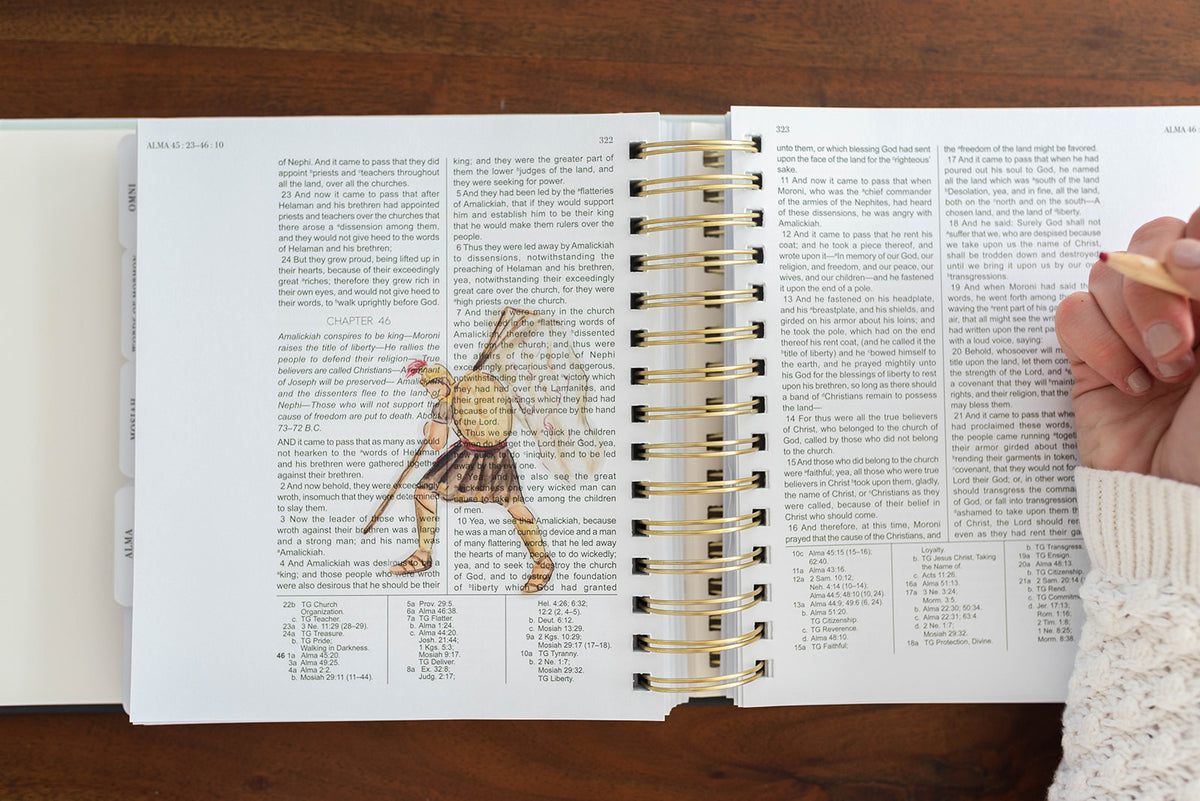 OMNI
WORDS OF MORMON
MOSIAH
ALMA
ALMA 45 : 23–46 : 10
322
of Nephi. And it came to pass that they did
appoint ᵇpriests and ᶜteachers throughout
all the land, over all the churches.
23 And now it came to pass that after
Helaman and his brethren had appointed
priests and teachers over the churches that
there arose a ᵃdissension among them,
and they would not give heed to the words
of Helaman and his brethren;
24 But they grew proud, being lifted up in
their hearts, because of their exceedingly
great ᵃriches; therefore they grew rich in
their own eyes, and would not give heed to
their words, to ᵇwalk uprightly before God.
CHAPTER 46
Amalickiah conspires to be king—Moroni
raises the title of liberty—He rallies the
people to defend their religion—True
believers are called Christians—A
of Joseph will be preserved— Amalic
and the dissenters flee to the land
Nephi—Those who will not support the
cause of freedom are put to death. About
73–72 B.C.
AND it came to pass that as many as would
not hearken to the ᵃwords of Helaman
and his brethren were gathered together
against their brethren.
2 And now behold, they were exceedingly
wroth, insomuch that they were determined
to slay them.
3 Now the leader of those who were
wroth against their brethren was a large
and a strong man; and his name was
ᵃAmalickiah.
4 And Amalickiah was desirous to be a
ᵃking; and those people who were wroth
were also desirous that he should be their
king; and they were the greater part of
them the lower ᵇjudges of the land, and
they were seeking for power.
5 And they had been led by the ᵃflatteries
of Amalickiah, that if they would support
him and establish him to be their king
that he would make them rulers over the
people.
6 Thus they were led away by Amalickiah
to dissensions, notwithstanding the
preaching of Helaman and his brethren,
yea, notwithstanding their exceedingly
great care over the church, for they were
ᵃhigh priests over the church.
7 And there were many in the church
who believed in the ᵃflattering words of
Amalickiah, therefore they ᵇdissented
even from the church; and thus were
the affairs of the people of Nephi
exceedingly precarious and dangerous,
notwithstanding their great victory which
they had had over the Lamanites, and
their great rejoicings which they had had
because of their deliverance by the hand
of the Lord.
8 Thus we see how quick the children
of men do forget the Lord their God, yea,
how quick to do iniquity, and to be led
away by the evil one.
9 Yea, and we also see the great
wickedness one very wicked man can
cause to take place among the children
of men.
10 Yea, we see that Amalickiah, because
he was a man of cunning device and a man
of many flattering words, that he led away
the hearts of many people to do wickedly;
yea, and to seek to destroy the church
of God, and to destroy the foundation
of ᵇliberty which God had granted
22b TG Church
Organization.
c. TG Teacher.
23a 3 Ne. 11:29 (28–29).
24a TG Treasure.
b. TG Pride;
Walking in Darkness.
46 1a Alma 45:20.
3a Alma 49:25.
4a Alma 2:2.
b. Mosiah 29:11 (11–44).
5a Prov. 29:5.
6a Alma 46:38.
7a TG Flatter.
b. Alma 1:24.
c. Alma 44:20.
Josh. 21:44;
1 Kgs. 5:3;
Mosiah 9:17.
TG Deliver.
8a Ex. 32:8;
Judg. 2:17;
Hel. 4:26; 6:32;
12:2 (2, 4–5).
b. Deut. 6:12.
c. Mosiah 13:29.
9a 2 Kgs. 10:29;
Mosiah 29:17 (17–18).
10a TG Tyranny.
b. 2 Ne. 1:7;
Mosiah 29:32.
TG Liberty.
323
ALMA 46 :
unto them, or which blessing God had sent
upon the face of the land for the ᶜrighteous'
sake.
11 And now it came to pass that when
Moroni, who was the ᵃchief commander
of the armies of the Nephites, had heard
of these dissensions, he was angry with
Amalickiah.
12 And it came to pass that he rent his
coat; and he took a piece thereof, and
wrote upon it—ᵃIn memory of our God, our
religion, and freedom, and our peace, our
wives, and our children—and he fastened
it upon the end of a pole.
13 And he fastened on his headplate,
and his ᵃbreastplate, and his shields, and
girded on his armor about his loins; and
he took the pole, which had on the end
thereof his rent coat, (and he called it the
ᵇtitle of liberty) and he ᶜbowed himself to
the earth, and he prayed mightily unto
his God for the blessings of liberty to rest
upon his brethren, so long as there should
a band of ᵈChristians remain to possess
the land—
14 For thus were all the true believers
of Christ, who belonged to the church of
God, called by those who did not belong
to the church.
15 And those who did belong to the church
were ᵃfaithful; yea, all those who were true
believers in Christ ᵇtook upon them, gladly,
the name of Christ, or ᶜChristians as they
were called, because of their belief in
Christ who should come.
16 And therefore, at this time, Moroni
prayed that the cause of the Christians, and
the ᵃfreedom of the land might be favored.
17 And it came to pass that when he had
poured out his soul to God, he named
all the land which was ᵃsouth of the land
ᵇDesolation, yea, and in fine, all the land,
both on the ᶜnorth and on the south—A
chosen land, and the land of ᵈliberty.
18 And he said: Surely God shall not
ᵃsuffer that we, who are despised because
we take upon us the name of Christ,
shall be trodden down and destroyed,
until we bring it upon us by our ow
ᵇtransgressions.
19 And when Moroni had said th
words, he went forth among th
waving the ᵃrent part of his ga
air, that all might see the writ
had written upon the rent pa
with a loud voice, saying:
20 Behold, whosoever will m
title upon the land, let them co
the strength of the Lord, and ᵃ
a covenant that they will ᵇmaint
rights, and their religion, that th
may bless them.
21 And it came to pass that when
had proclaimed these words,
the people came running ᵃtoget
their armor girded about thei
ᵇrending their garments in token,
ᶜcovenant, that they would not fo
Lord their God; or, in other word
should transgress the comma
of God, or fall into transgression
ᵈashamed to take upon them th
of Christ, the Lord should ren
even as they had rent their ga
10c Alma 45:15 (15–16);
62:40.
11a Alma 43:16.
12a 2 Sam. 10:12;
Neh. 4:14 (10–14);
Alma 44:5; 48:10 (10, 24).
13a Alma 44:9; 49:6 (6, 24).
b. Alma 51:20.
TG Citizenship.
c. TG Reverence.
d. Alma 48:10.
15a TG Faithful;
Loyalty.
b. TG Jesus Christ, Taking
the Name of.
c. Acts 11:26.
16a Alma 51:13.
17a 3 Ne. 3:24;
Morm. 3:5.
b. Alma 22:30; 50:34.
c. Alma 22:31; 63:4.
d. 2 Ne. 1:7;
Mosiah 29:32.
18a TG Protection, Divine.
b. TG Transgress.
19a TG Ensign.
20a Alma 48:13.
b. TG Citizenship.
21a 2 Sam. 20:14
b. TG Rend.
c. TG Commitm
d. Jer. 17:13;
Rom. 1:16;
2 Tim. 1:8;
1 Ne. 8:25;
Morm. 8:38.